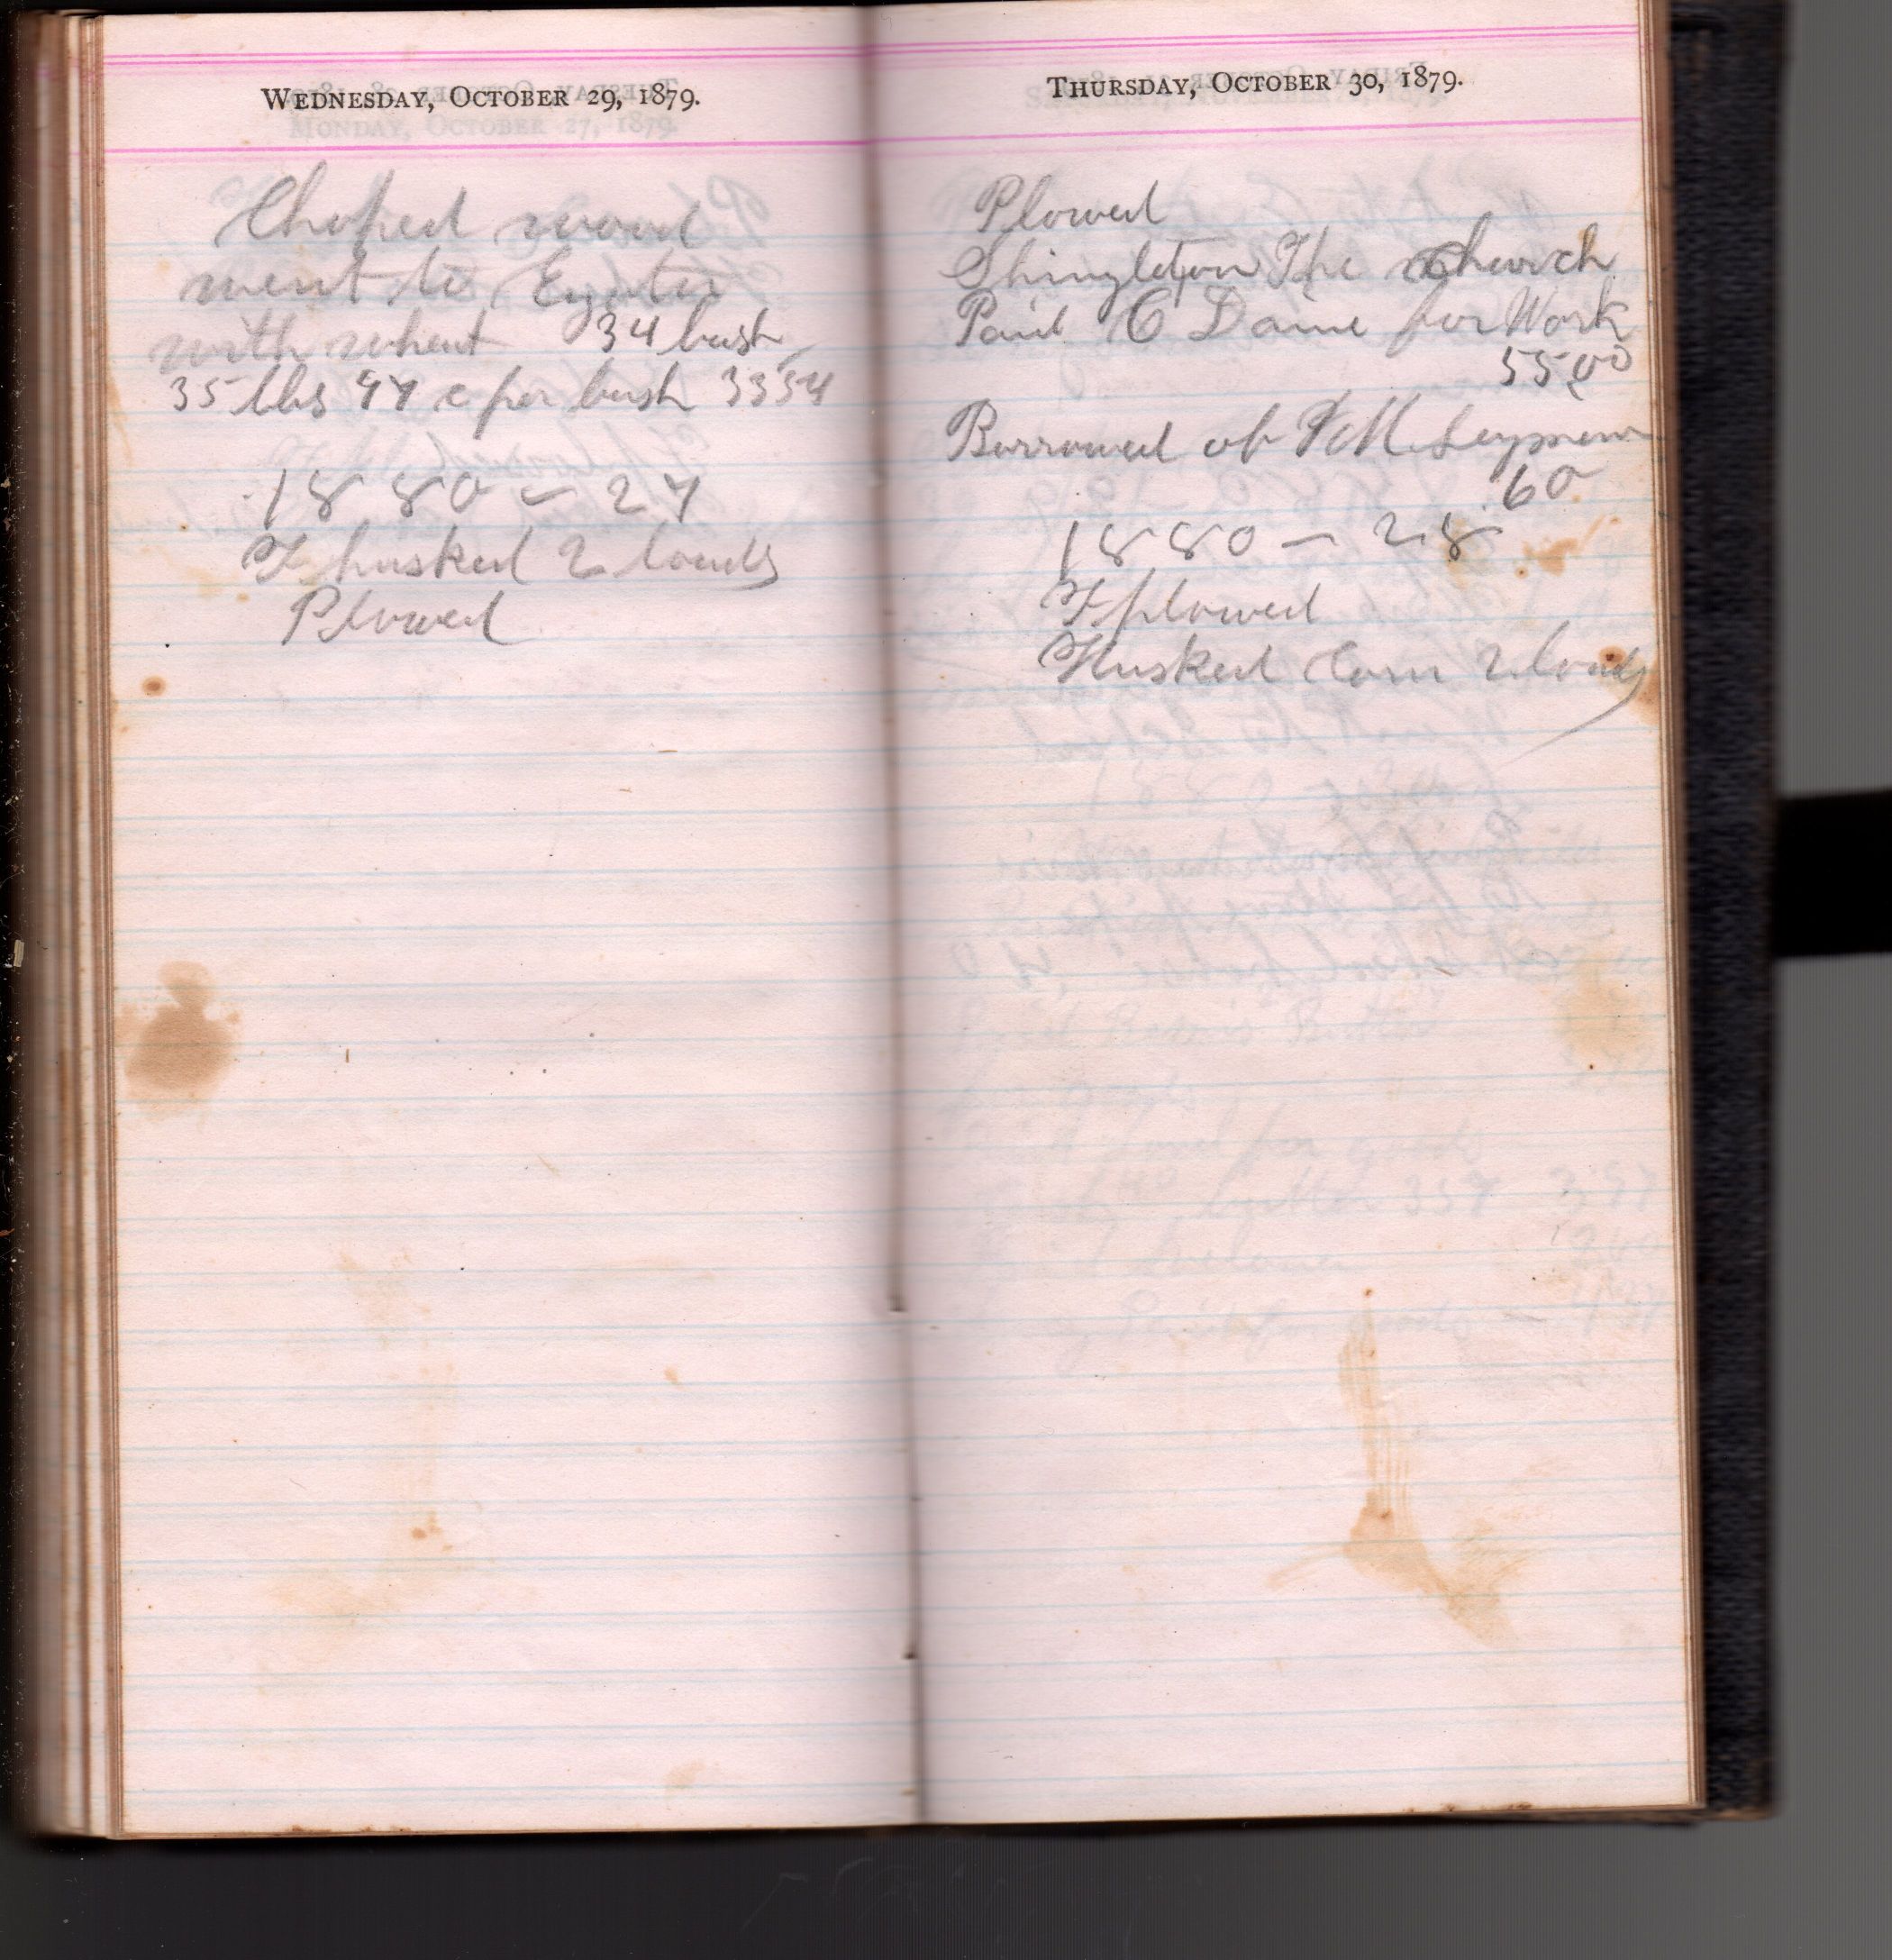 WEDNESDAY, OCTOBER 29, 1879.
Choped wood
went to Exeter
with wheat 34 bush
35 lbs 97 c per bush 3354
1880 - 27
F husked 2 loads
Plowed
THURSDAY, OCTOBER 30, 1879.
Plowed
Shingleton The church
Paid C Daine for Work
5500
Borrowed of
60
1880 - 28
F plowed
Husked Corn 2 loads